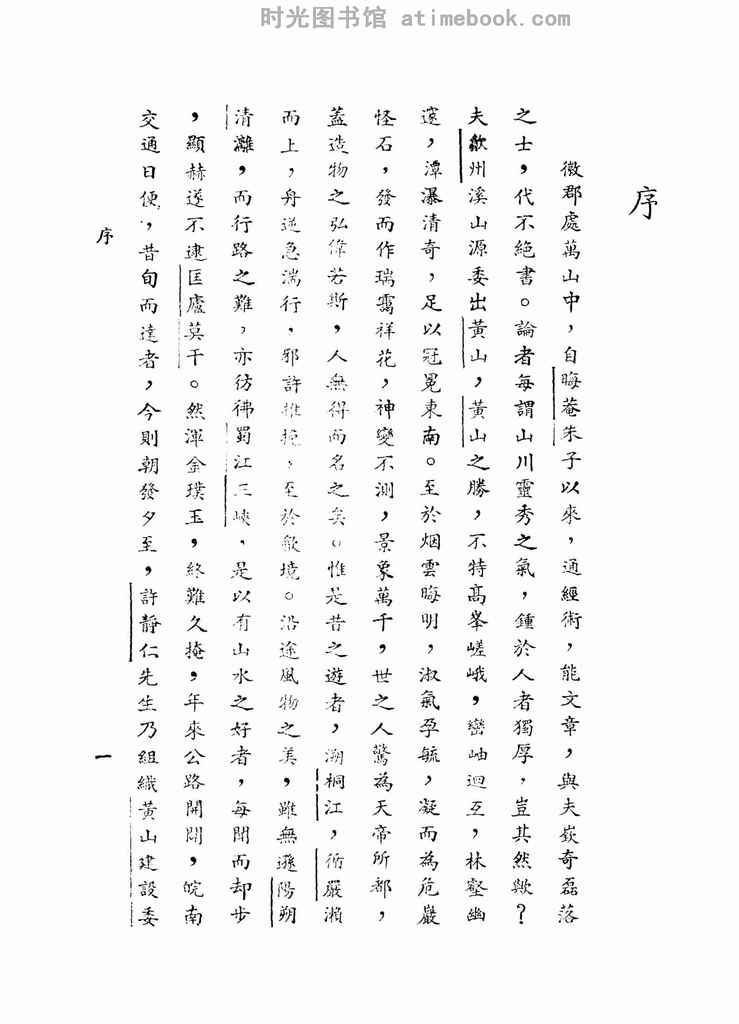 时光图书馆 atimebook.com
序
徽郡處萬山中，自晦菴朱子以來，通經術，能文章，與夫嶔奇磊落
之士，代不絕書。論者每謂山川靈秀之氣，鍾於人者獨厚，豈其然歟？
夫歙州溪山源委出黃山，黃山之勝，不特高峯嵯峨，巒岫迴互，林壑幽
邃，潭瀑清奇，足以冠冕東南。至於烟雲晦明，淑氣孕毓，凝而為危巖
怪石，發而作瑞靄祥花，神變不測，景象萬千，世之人驚為天帝所都，
蓋造物之弘偉若斯，人無得而名之矣。惟是昔之遊者，溯桐江，循嚴瀨
而上，舟逆急湍行，邪許推挽，至於歙境。沿途風物之美，雖無遜陽朔
清灕，而行路之難，亦彷彿蜀江三峽，是以有山水之好者，每聞而却步
，顯赫遂不逮匡廬莫干。然渾金璞玉，終難久掩，年來公路開闢，皖南
交通日便，昔旬而達者，今則朝發夕至，許靜仁先生乃組織黃山建設委
序
一